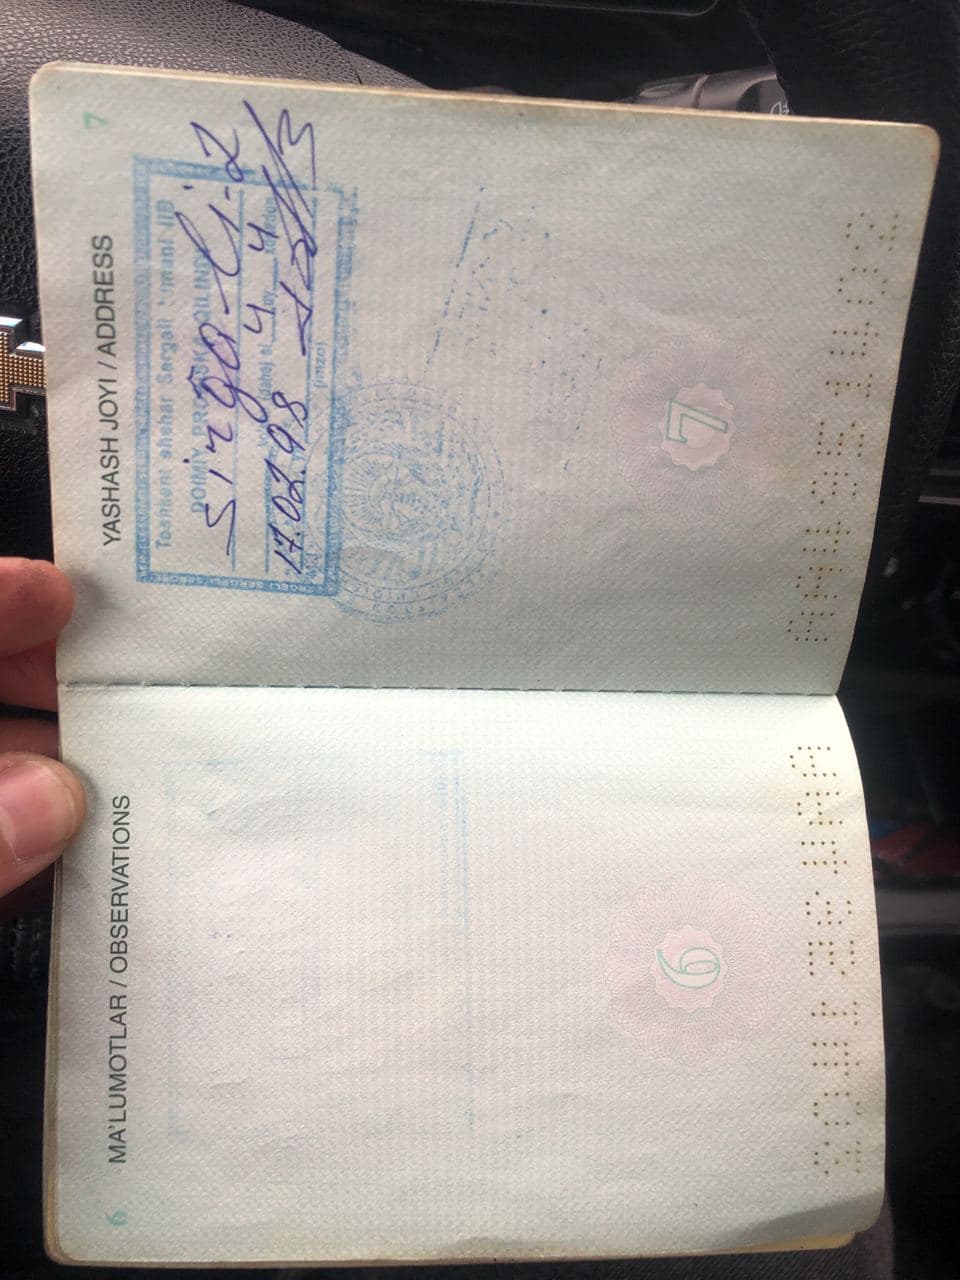 6
MA'LUMOTLAR / OBSERVATIONS
6
7
YASHASH JOYI / ADDRESS
Toshkent shahar Sergeli tumani IIB
DOIMIY PROPISKA QILINDI
sirğa-li-2
(daha) si 4 uy 4 xonadon
17.02.98
M.J. (imzo)
7
AA4951402